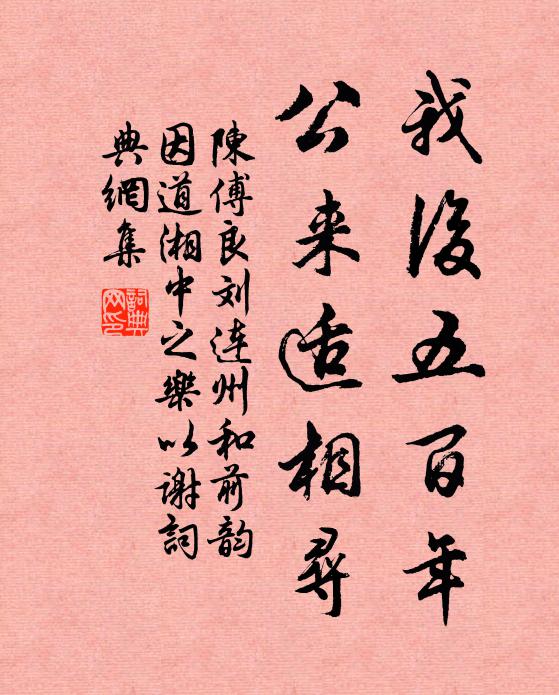 我後五百年
公来适相尋
陳傅良刘连州和前韵
因道湘中之樂以谢詞
典網集
詞典网印